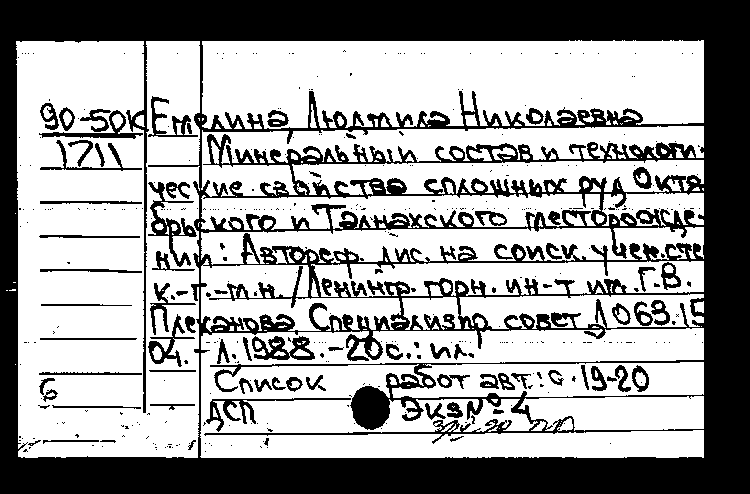 90-50К Емелина, Людмила Николаевна
1711 Минеральный состав и технологи-
ческие свойства сплошных руд Октя
брьского и Талнахского месторожде-
нии : Автореф. дис. на соиск. учен. сте
к.-г.-м.н. / Ленингр. горн. ин-т им. Г.В.
Плеханова. Специализир. совет Д 063.15
04. - Л. 1988. - 20с. : ил.
6 Список работ авт.: с. 19-20
ДСП Экз № 4